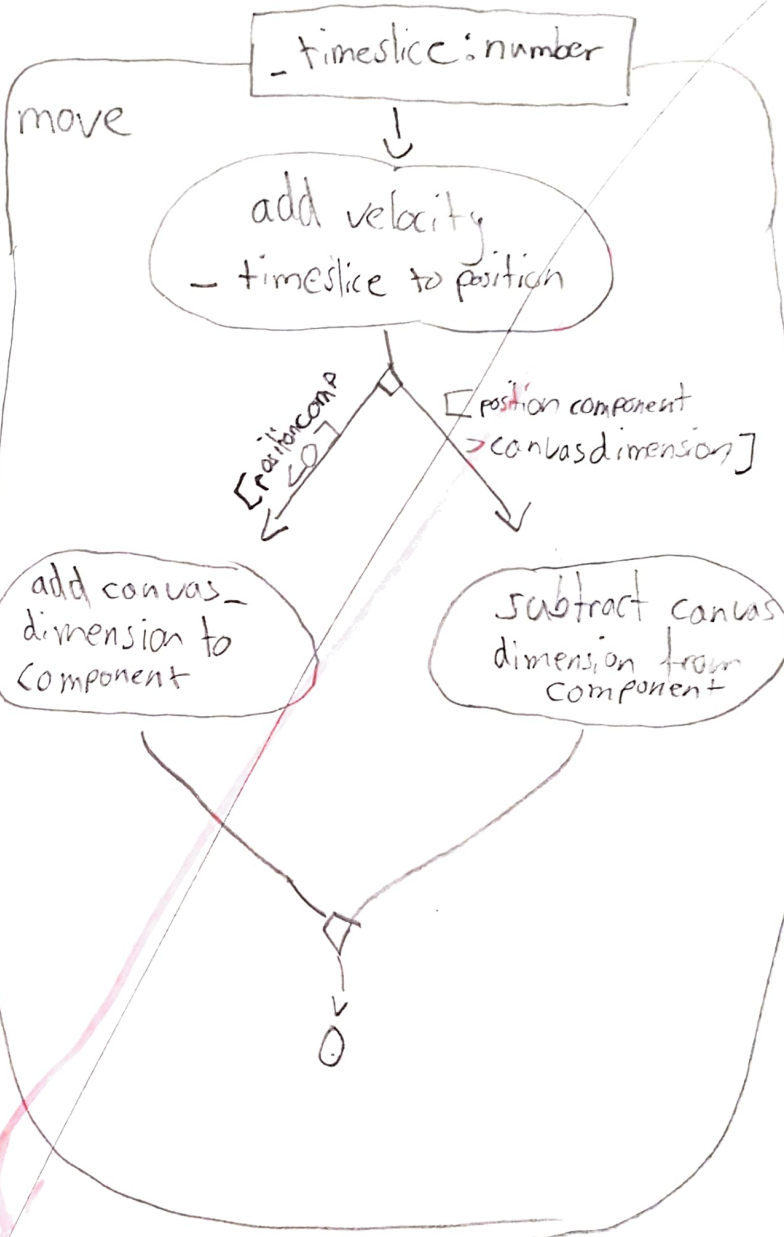 _timeslice: number
move
add velocity
_timeslice to position
[position comp
<0]
[position component
>canvasdimension]
add canvas_
dimension to
component
subtract canvas
dimension from
component